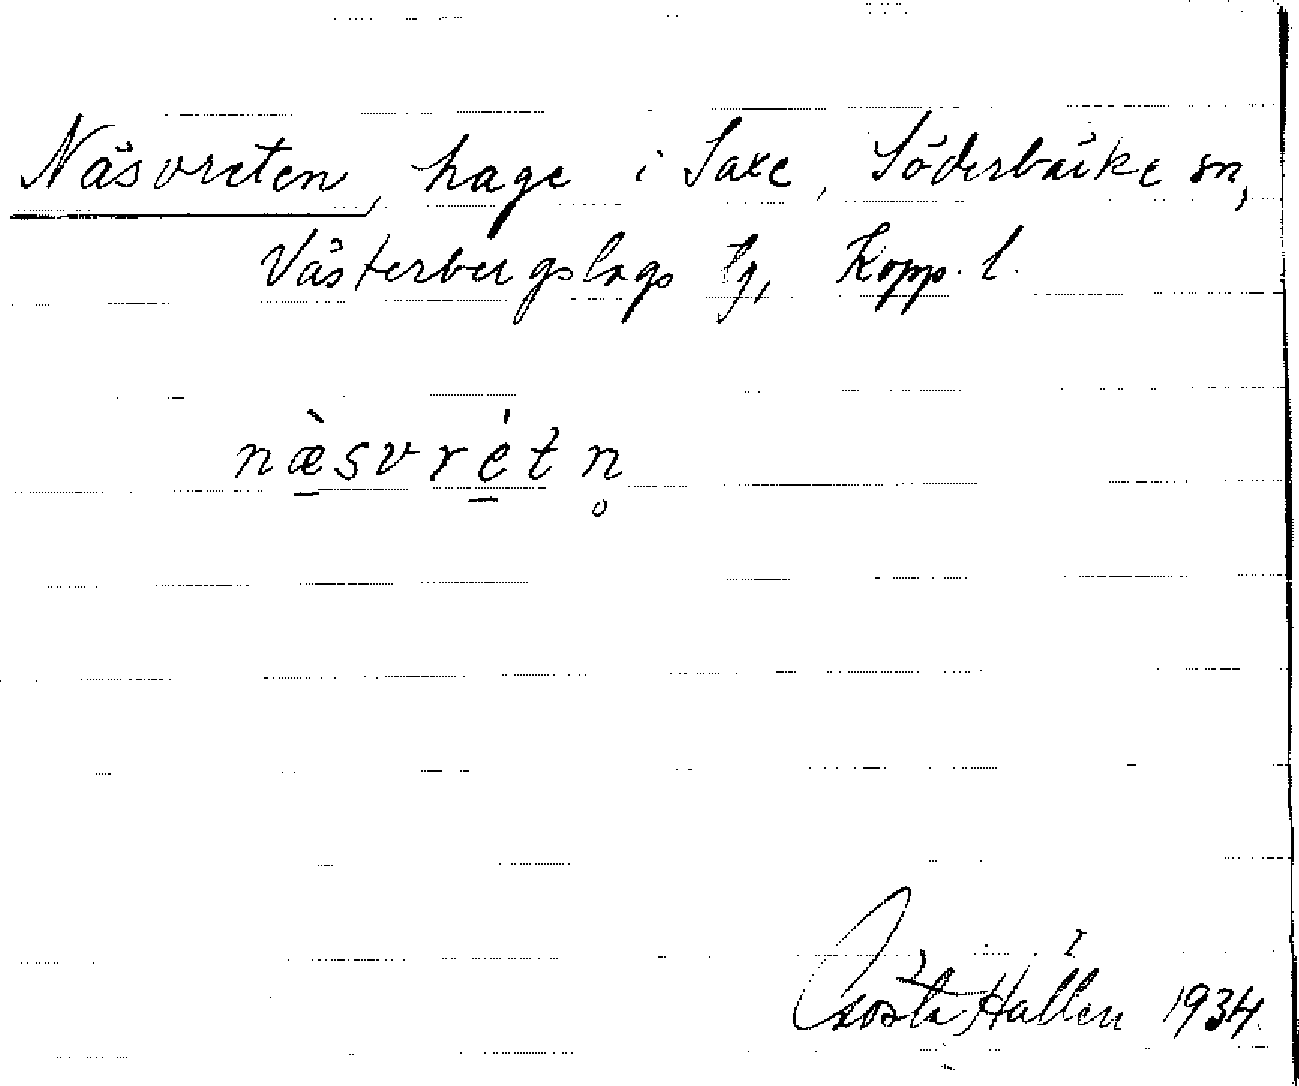 Näsvreten, hage i Saxe, Söderbärke sn,
Västerbergslags tg, Kopp. l.
næ̱̀svré̱tn̥
Gösta Hallén 1934.